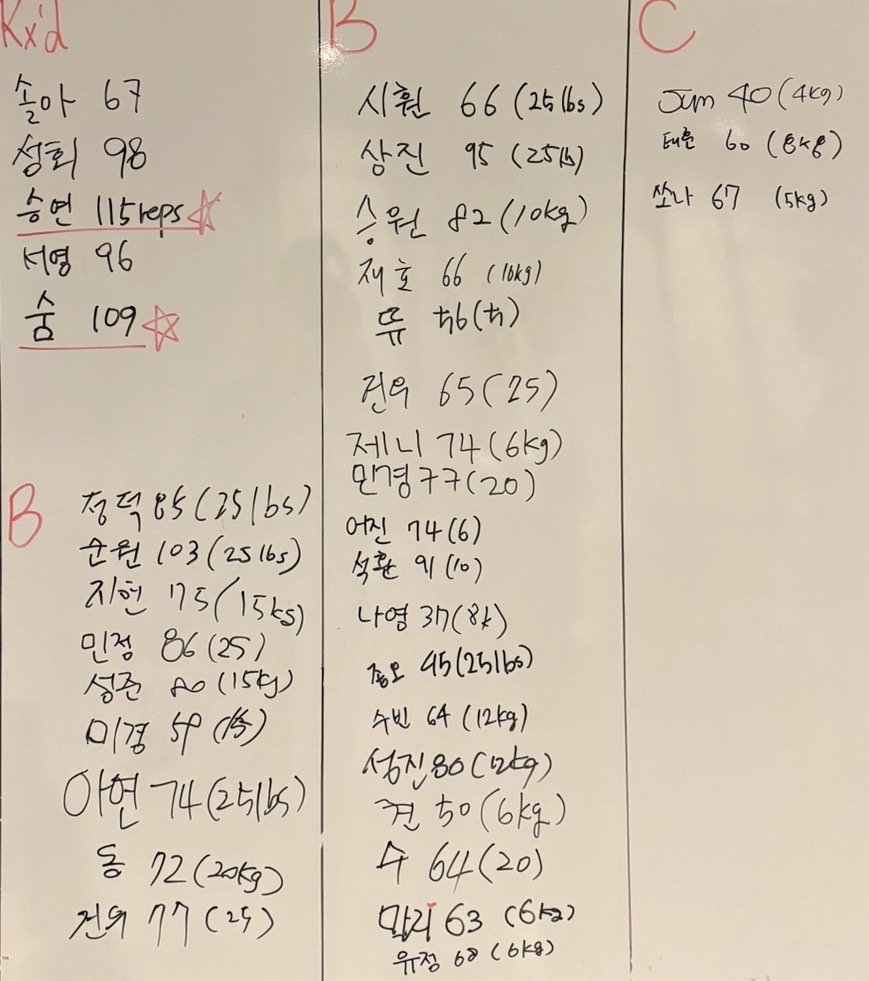 Rx'd
솔아 67
성희 98
승연 115reps
서영 96
숨 109
B
정덕 85 (25lbs)
순원 103 (25lbs)
지현 75 (15kg)
민정 86 (25)
성준 80 (15kg)
미경 59
아현 74 (25lbs)
동 72 (20kg)
건의 77 (25)
B
시훤 66 (25lbs)
상진 95 (25lb)
승원 82 (10kg)
재호 66 (10kg)
뜌 56 (5)
건의 65 (25)
제니 74 (6kg)
민경 77 (20)
어진 74 (6)
석환 91 (10)
나영 37 (8k)
종오 95 (25lbs)
수빈 64 (12kg)
성진 80 (12kg)
견 50 (6kg)
수 64 (20)
63 (6kg)
유정 68 (6kg)
C
Jim 40 (4kg)
태훈 60 (8kg)
쏘나 67 (5kg)